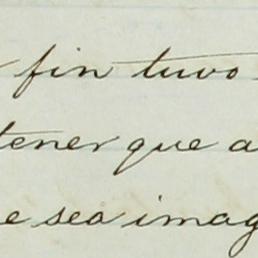 fin tuvo
tener que a
e sea imag